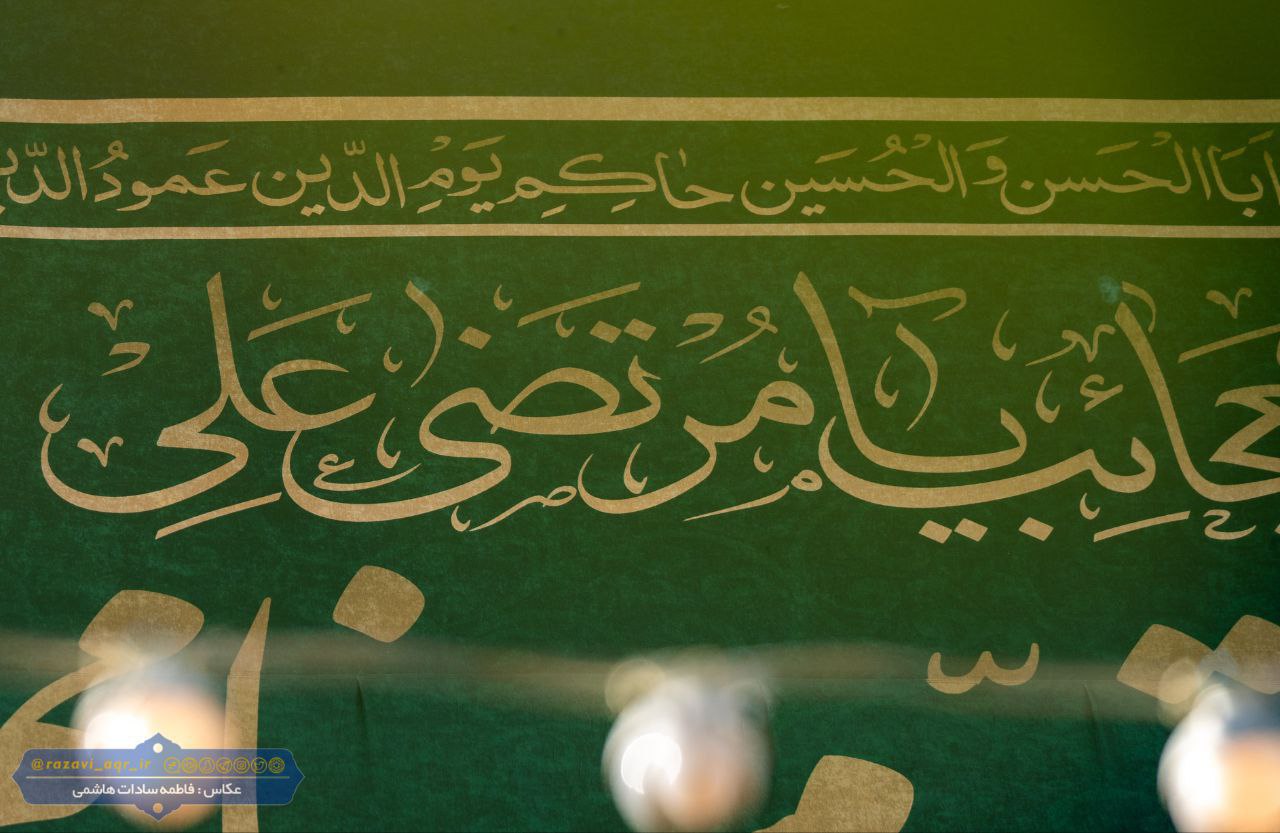 اَبَا الْحَسَن وَ الْحُسَین حاکِمِ یَوْمِ الدّین عَمودُ الدّ
عَجائِب یا مُرْتَضی عَلی
@razavi_aqr_ir
عکاس : فاطمه سادات هاشمی